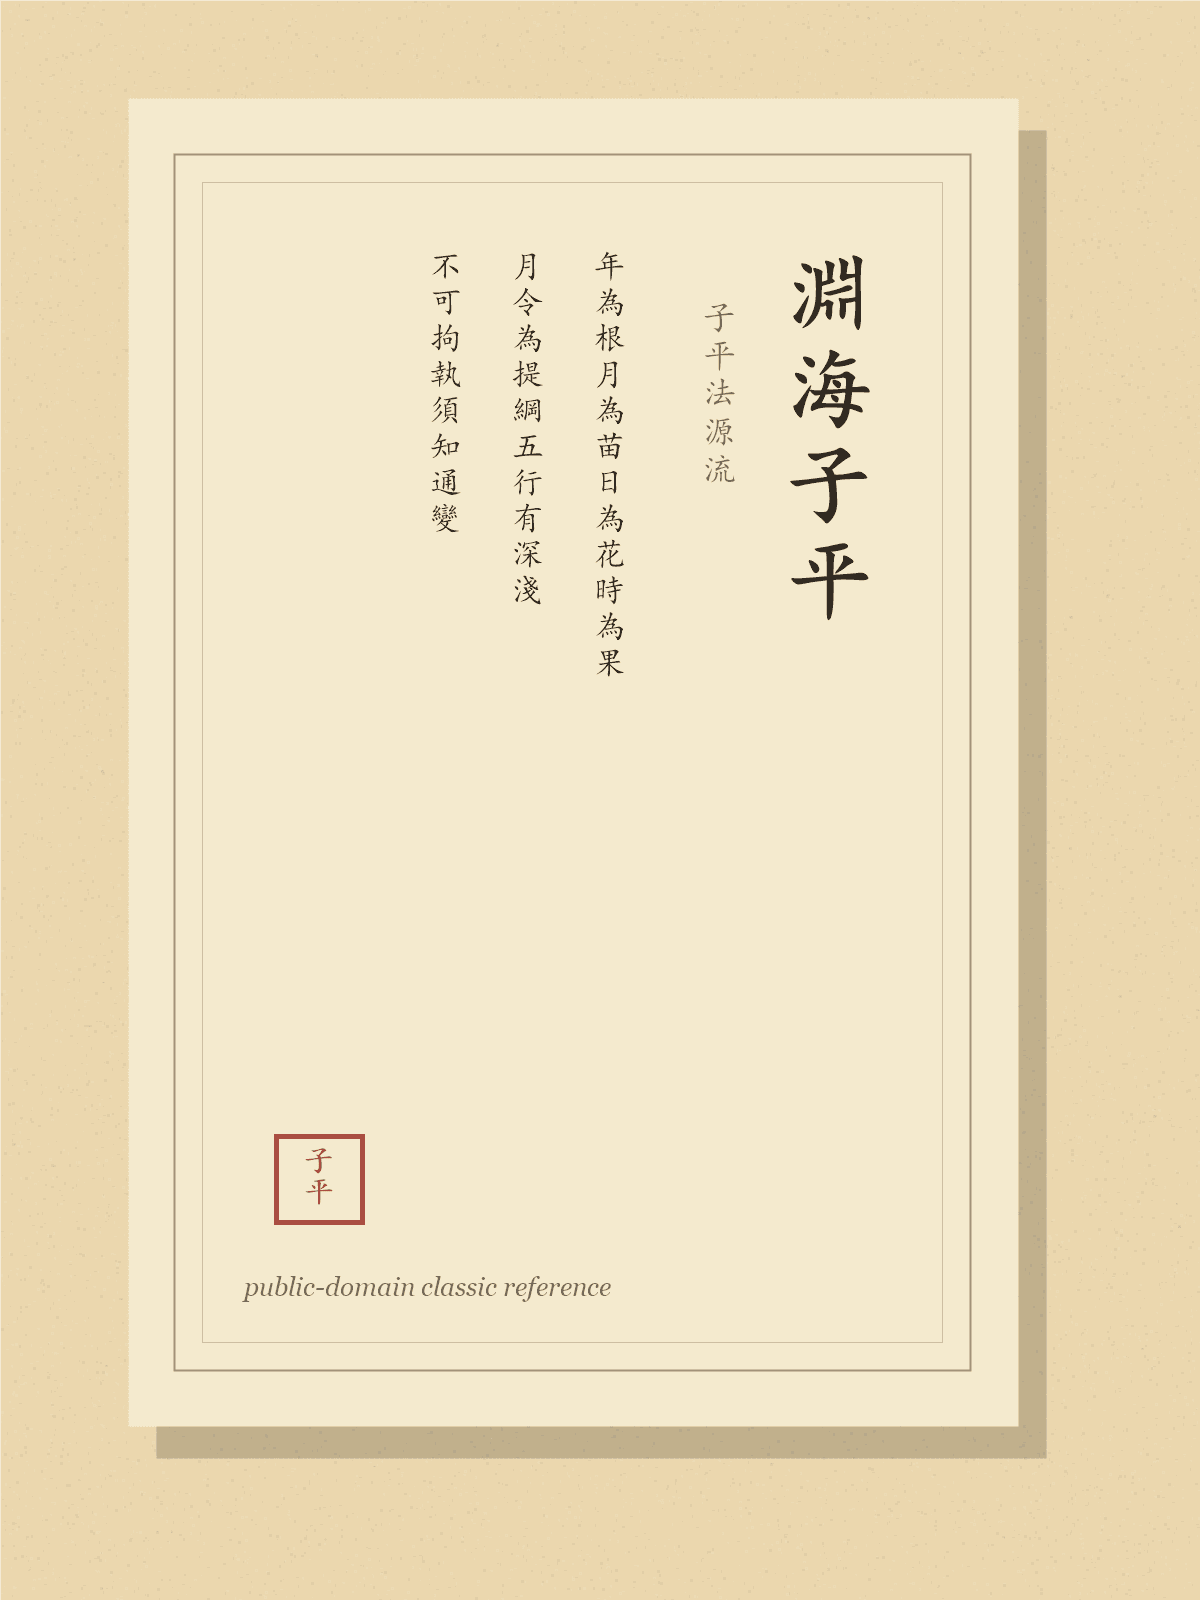 淵海子平
子平法源流
年為根月為苗日為花時為果
月令為提綱五行有深淺
不可拘執須知通變
子平
public-domain classic reference